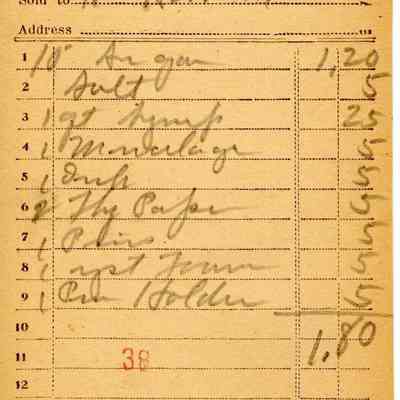 Sold to
Address
1 10 Sugar 1,20
2 Salt 5
3 1 qt 25
4 1 Mucilage 5
5 1 Ink 5
6 2 Fly Paper 5
7 1 5
8 1 5
9 1 Pen Holder 5
10 1.80
11 38
12